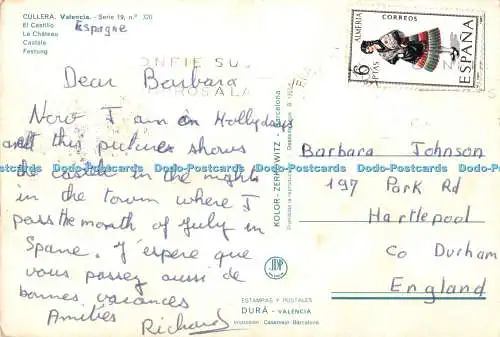 CULLERA. Valencia. - Serie 19, n.º 320
El Castillo
Le Château
Castele
Festung
Espagne
ONFIE SU
ROSALA
6
PTAS
ALMERIA
CORREOS
ESPAÑA
Dear Barbara
Now I am on Hollydays
and this pictures shows
the castle in the nights
in the town where I
pass the month of July in
Spane. J'espère que
vous passez aussi de
bonnes vacances
Amitiés
Richard
KOLOR-ZERKOWITZ - Barcelona
Prohibida la reproducción
JDP
ESTAMPAS Y POSTALES
DURÁ - VALENCIA
Impresión: Casamajó-Barcelona
Barbara Johnson
197 Park Rd
Hartlepool
Co Durham
England
Dodo-Postcards Dodo-Postcards Dodo-Postcards Dodo-Postcards Dodo-Postcards Dodo-Postcards